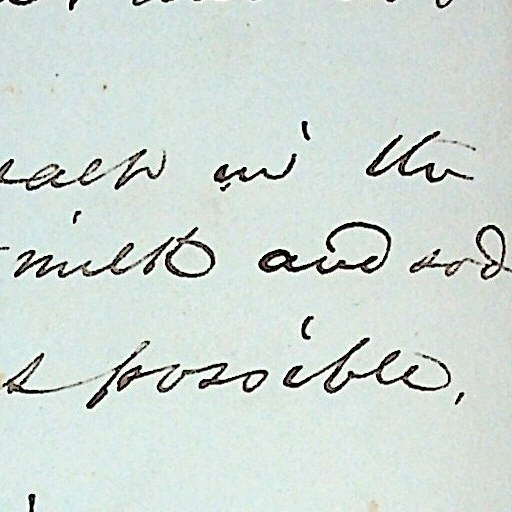 salt in the
milk and sod
s possible,